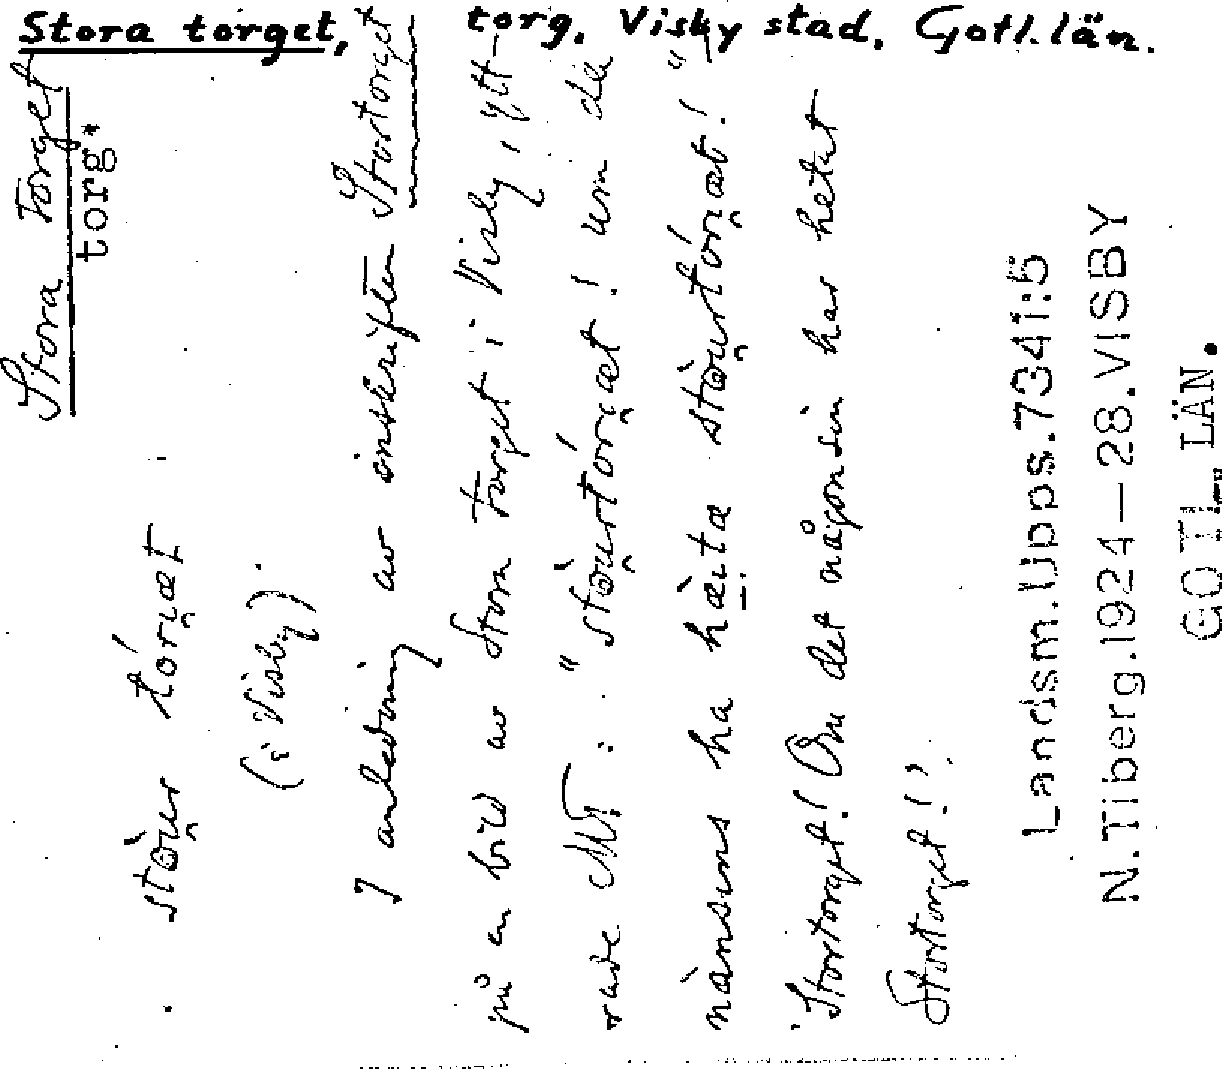 Stora torget, torg, Visby stad, Gotl. län.
Stora Torget
torg*
stòu̯r tórgæt
(i Visby)
I anledning av inskriften Stortorget
på en bild av Stora Torget i Visby, ytt-
rade MT: "stòu̯rtórgæt! um dä
nànsins ha hæita stòu̯rtórgæt!"
'Stortorget! Om det någonsin har hetat
Stortorget!'.
Landsm.Upps.7341:5
N.Tiberg.1924-28.VISBY
GOTL. LÄN.